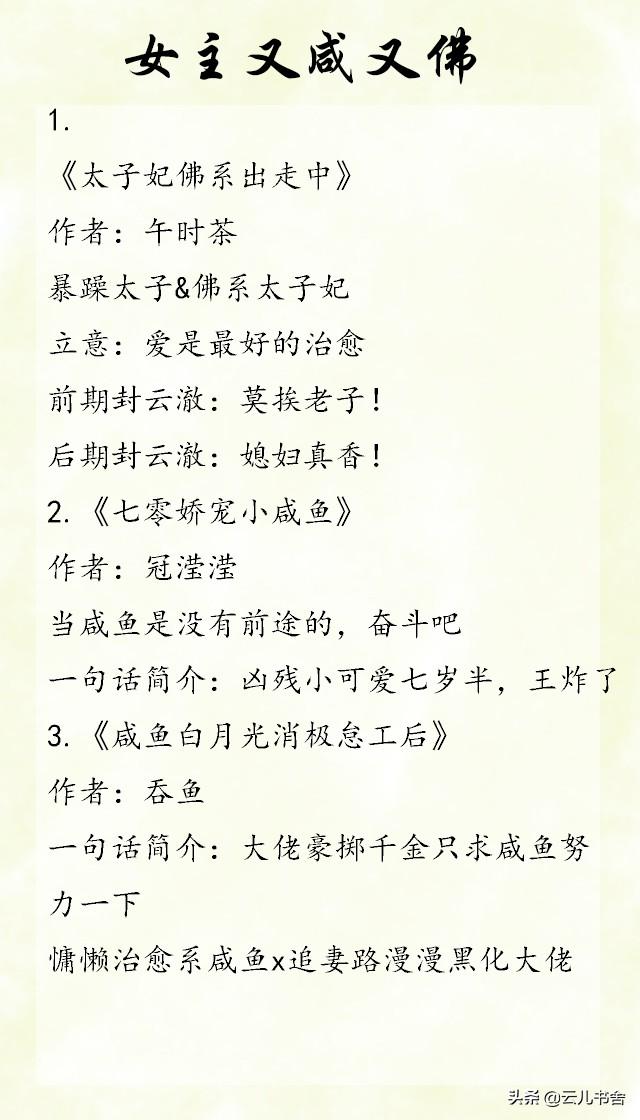 女主又咸又佛
1.
《太子妃佛系出走中》
作者：午时茶
暴躁太子&佛系太子妃
立意：爱是最好的治愈
前期封云澈：莫挨老子！
后期封云澈：媳妇真香！
2.《七零娇宠小咸鱼》
作者：冠滢滢
当咸鱼是没有前途的，奋斗吧
一句话简介：凶残小可爱七岁半，王炸了
3.《咸鱼白月光消极怠工后》
作者：吞鱼
一句话简介：大佬豪掷千金只求咸鱼努
力一下
慵懒治愈系咸鱼x追妻路漫漫黑化大佬
头条 @云儿书舍